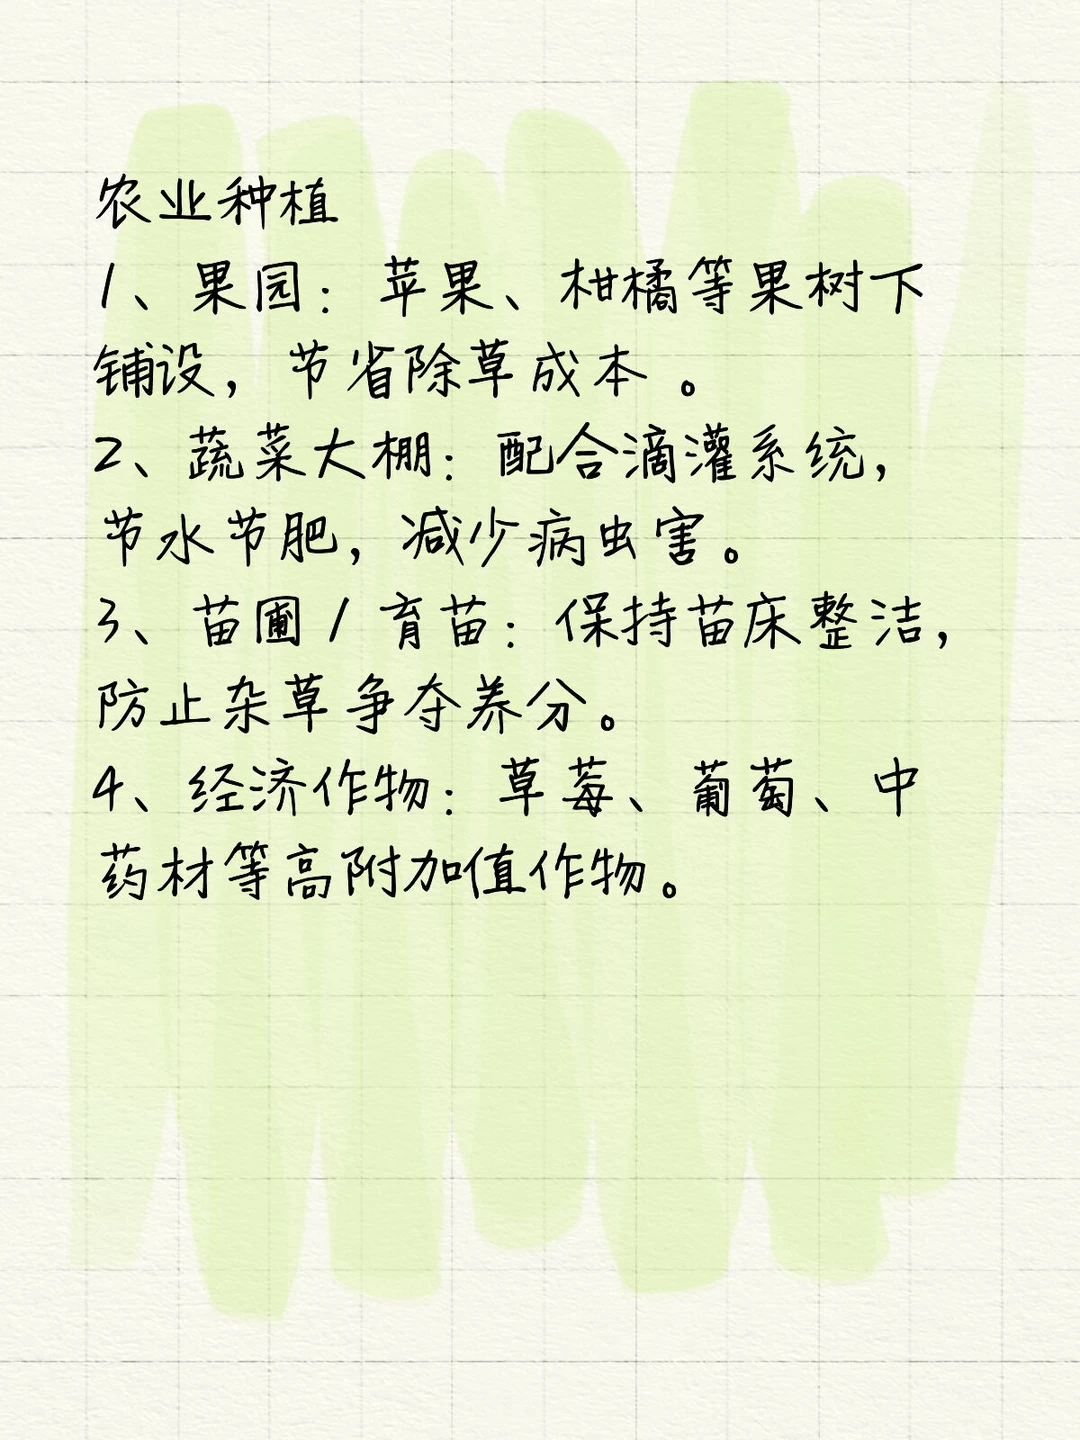 农业种植
1、果园：苹果、柑橘等果树下
铺设，节省除草成本 。
2、蔬菜大棚：配合滴灌系统，
节水节肥，减少病虫害。
3、苗圃 / 育苗：保持苗床整洁，
防止杂草争夺养分。
4、经济作物：草莓、葡萄、中
药材等高附加值作物。